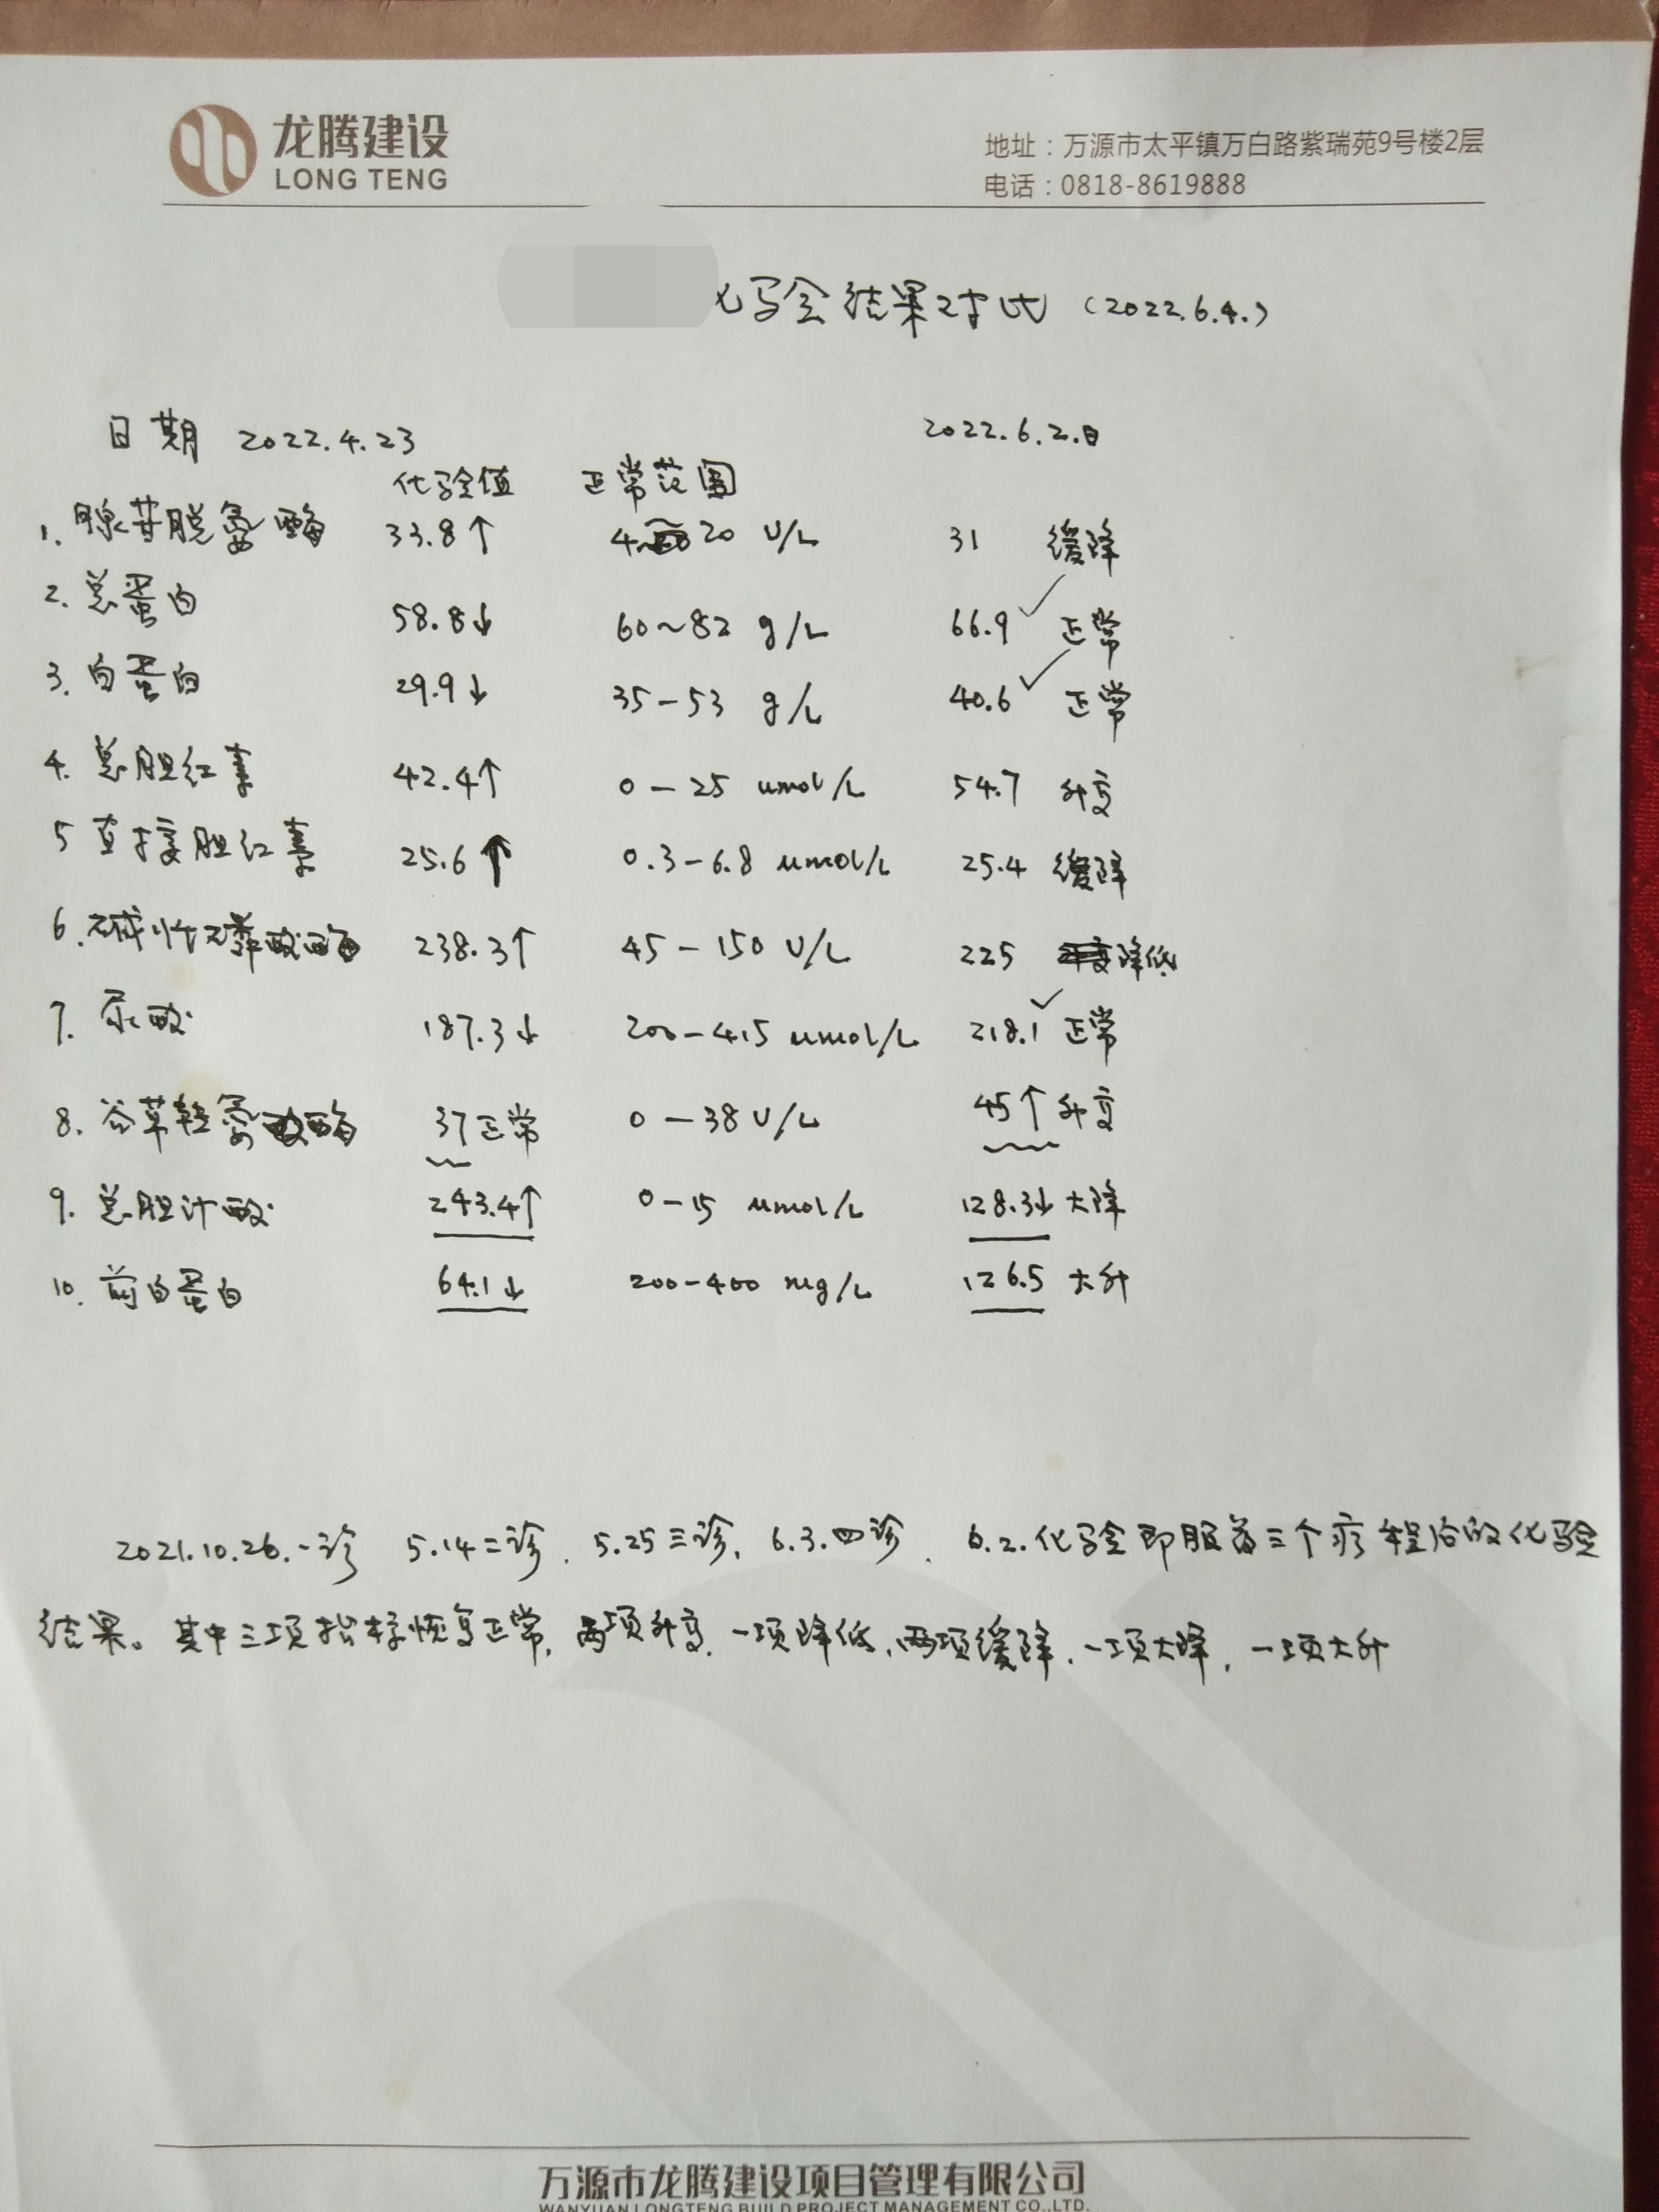 龙腾建设
LONG TENG
地址：万源市太平镇万白路紫瑞苑9号楼2层
电话：0818-8619888
化验结果对比（2022.6.4.）
日期 2022.4.23 2022.6.2.日
化验值 正常范围
1. 腺苷脱氨酶 33.8↑ 4~20 U/L 31 缓降
2. 总蛋白 58.8↓ 60~82 g/L 66.9 ✓ 正常
3. 白蛋白 29.9↓ 35-53 g/L 40.6 ✓ 正常
4. 总胆红素 42.4↑ 0-25 umol/L 54.7 升高
5 直接胆红素 25.6↑ 0.3-6.8 umol/L 25.4 缓降
6. 碱性磷酸酶 238.3↑ 45-150 U/L 225 降低
7. 尿酸 187.3↓ 200-415 umol/L 218.1 ✓ 正常
8. 谷草转氨酶 37正常 0-38 U/L 45↑ 升高
9. 总胆汁酸 243.4↑ 0-15 umol/L 128.3↓ 大降
10. 前白蛋白 64.1↓ 200-400 mg/L 126.5 大升
2021.10.26.一诊 5.14二诊. 5.25三诊, 6.3.四诊. 6.2.化验即服药三个疗程后的化验
结果。其中三项指标恢复正常, 两项升高, 一项降低, 两项缓降, 一项大降, 一项大升
万源市龙腾建设项目管理有限公司
WANYUAN LONGTENG BUILD PROJECT MANAGEMENT CO.,LTD.